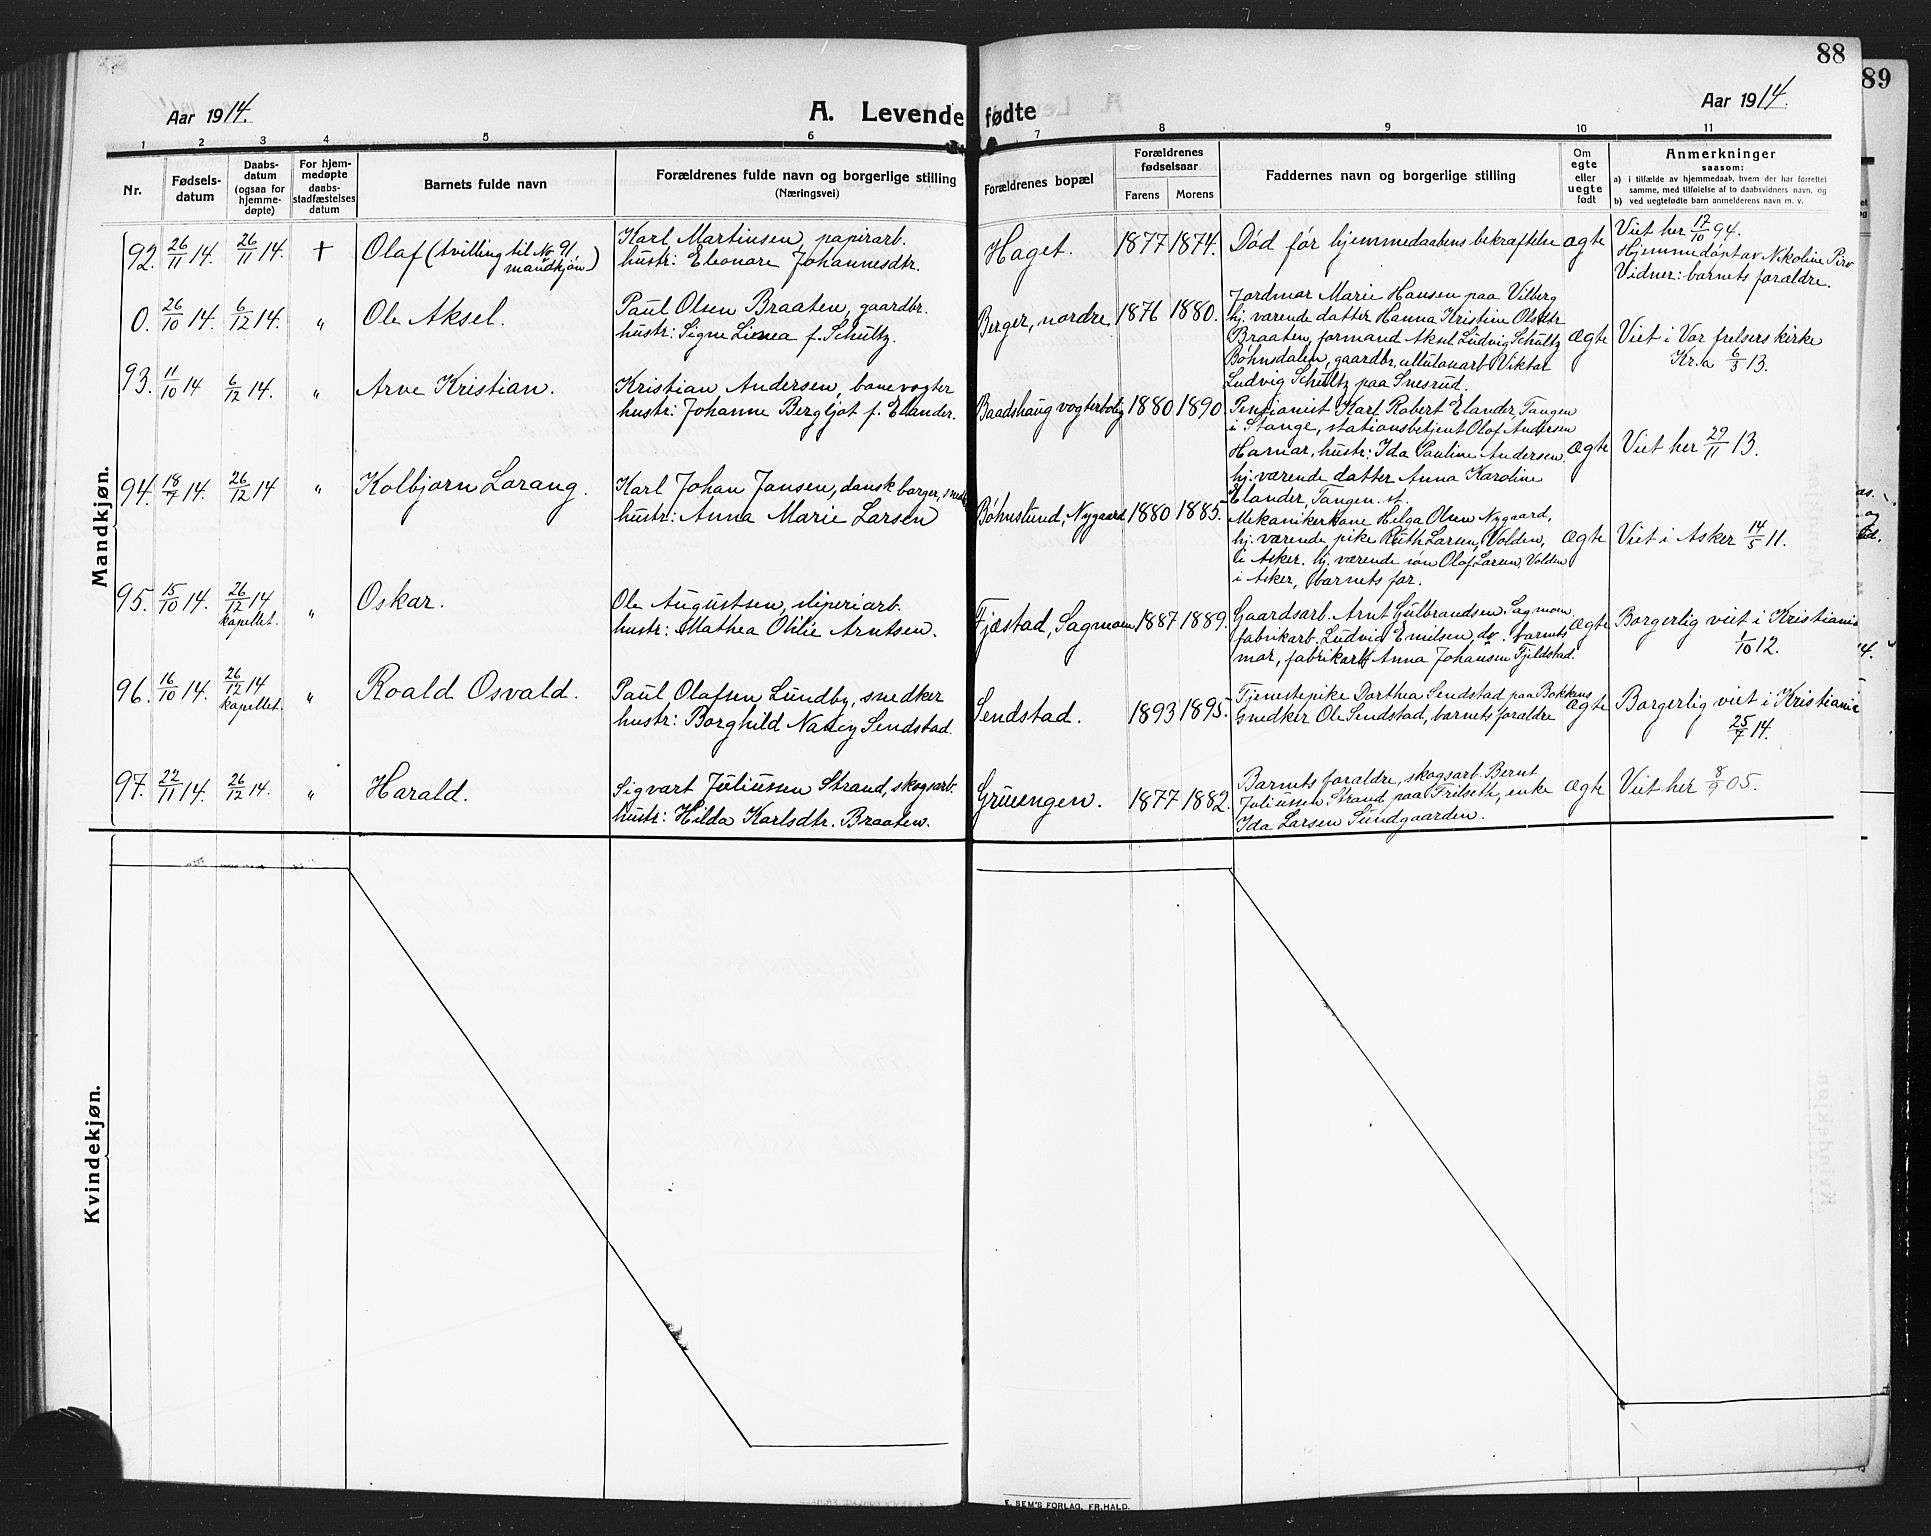 88
89
Aar 1914.
A. Levende fødte
Aar 1914.
1 2 3 4 5 6 7 8 9 10 11
Nr.
Fødsels-
datum
Daabs-
datum
(ogsaa for
hjemme-
døpte)
For hjem-
medøpte
daabs-
stadfæstelses
datum
Barnets fulde navn
Forældrenes fulde navn og borgerlige stilling
(Næringsvei)
Forældrenes bopæl
Forældrenes
fødselsaar
Farens Morens
Faddernes navn og borgerlige stilling
Om
egte
eller
uegte
født
Anmerkninger
saasom:
a) i tilfælde av hjemmedaab, hvem der har forrettet
samme, med tilføielse af to daabsvidners navn, og
b) ved uegtefødte barn anmelderens navn m. v.
Mandkjøn.
92. 26/11 14. 26/11 14. + Olaf (tvilling til No 91,
mandkjøn)
Karl Martinsen, papirarb.
hustr: Eleonore Johannesdtr.
Haget. 1877 1874. Død før hjemmedaabens bekræftelse ægte
Viet her 17/10 94.
Hjemmedøpt av Nikoline
Vidner: barnets forældre.
0. 26/10 14. 6/12 14. " Ole Aksel.
Paul Olsen Braaten, gaardbr.
hustr: Signe Linea f. Schultz.
Berger, nordre 1876 1880.
Jordmor Marie Hansen paa Vilberg
hj. værende datter Hanna Kristine Olsdtr
Braaten, formand Aksel Ludvig Schultz
Bøhnsdalen, gaardbr. Viktor
Ludvig Schultz paa Snesrud.
ægte Viet i Vor frelsers kirke
Kr.a 6/3 13.
93. 11/10 14 6/12 14. " Arve Kristian.
Kristian Andersen, banevogter
hustr: Johanne Bergljot f. Elander.
Baadshaug vogterbolig 1880 1890
Pensionist Karl Robert Elander, Tangen
i Stange, stationsbetjent Olaf Andersen
Hamar, hustr: Ida Pauline Andersen.
hj. værende datter Anna Karoline
Elander, Tangen st.
ægte Viet her 29/11 13.
94. 18/7 14. 26/12 14 " Kolbjørn Lorang.
Karl Johan Jansen, dansk borger,
hustr: Anna Marie Larsen
Bøhnslund, Nygaard 1880 1885.
Mekanikerkone Helga Olsen Nygaard,
hj. værende pike Ruth Larsen, Volden,
i Asker. hj. værende søn Olaf Larsen, Volden
i Asker, barnets far.
ægte Viet i Asker 14/5 11.
95. 15/10 14. 26/12 14
kapellet. " Oskar.
Ole Augustsen, sliperiarb.
hustr: Mathea Otilie Arntsen.
Fjæstad, Sagmoen 1887 1889.
Gaardsarb. Arnt Gulbrandsen, Sagmoen,
fabrikarb. Ludvig Emilsen, do. barnets
mor, fabrikarb. Anna Johansen Fjeldstad.
ægte Borgerlig viet i Kristiania
1/10 12.
96. 16/10 14. 26/12 14
kapellet. " Roald Osvald.
Paul Olafsen Lundby, snedker
hustr: Borghild Nancy Sendstad.
Sendstad. 1893 1895.
Tjenestepike Dorthea Sendstad paa Bakken
snedker Ole Sendstad, barnets forældre
ægte Borgerlig viet i Kristiania
25/7 14.
97. 22/11 14. 26/12 14. " Harald.
Sigvart Juliussen Strand, skogsarb.
hustr: Hilda Karlsdtr. Braaten.
Grueengen. 1877 1882.
Barnets forældre, skogsarb. Bernt
Juliussen Strand paa Frilseth, enke
Ida Larsen Sundgaarden.
ægte Viet her 8/9 05.
Kvindekjøn.
E. SEM'S FORLAG, FR.HALD.